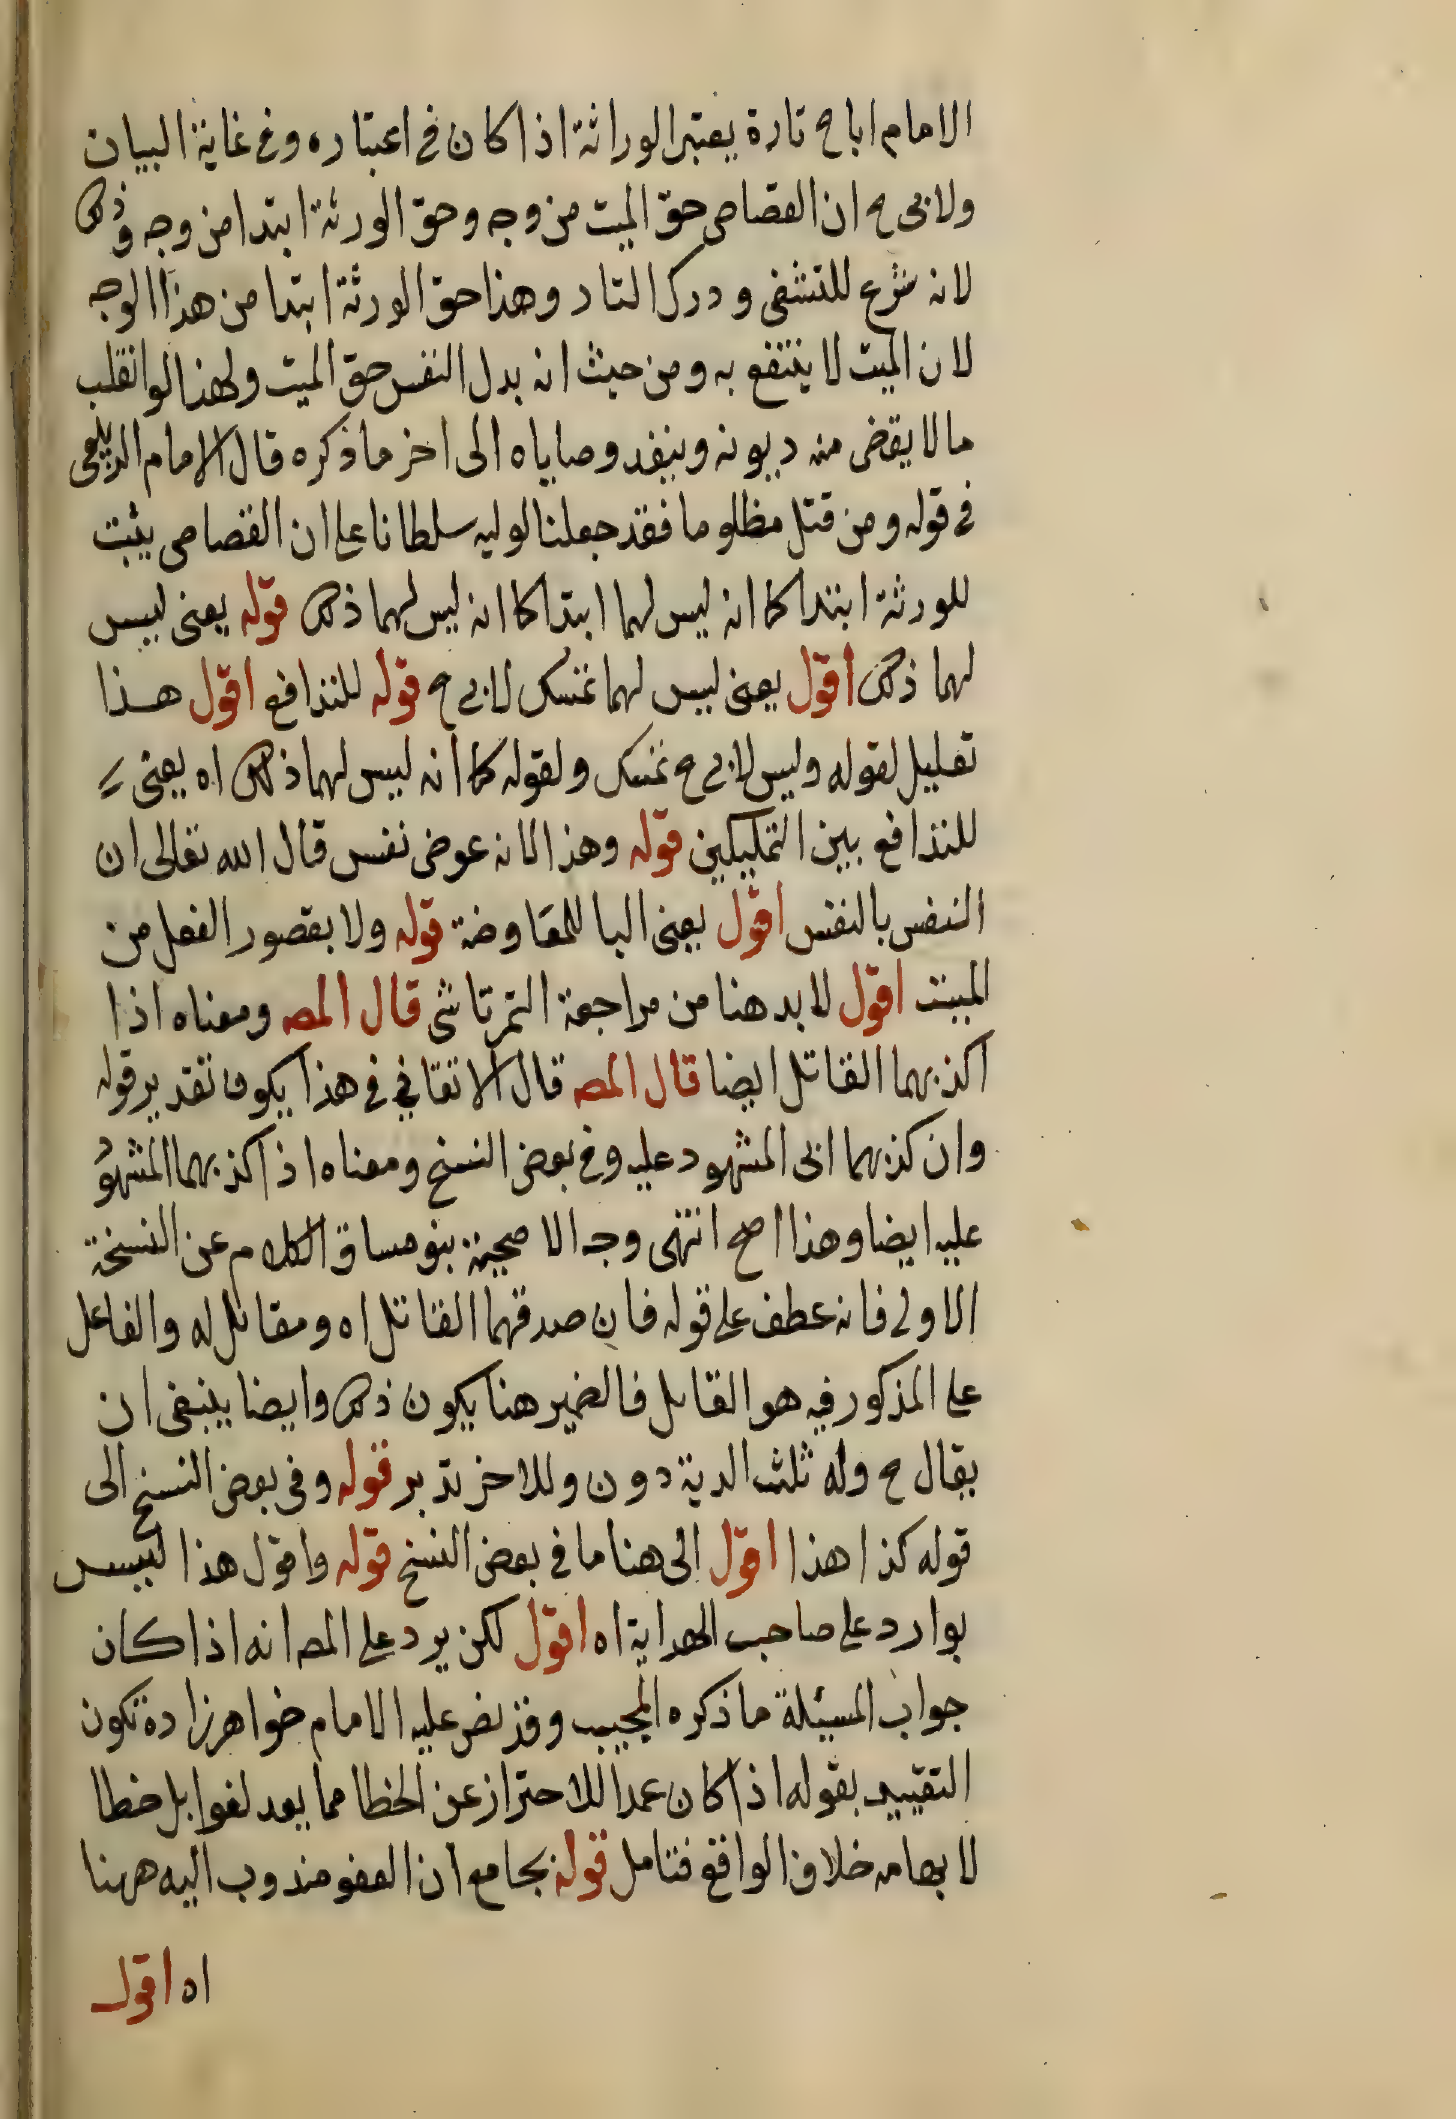 الامام ابا ح تارة يعتبر الوراثة اذا كان في اعتباره وفي غاية البيان
ولابي ح ان القصاص حق الميت من وجه وحق الورثة ابتدا من وجه وذلك
لانه شرع للتشفي ودرك الثار وهذا حق الورثة ابتدا من هذا الوجه
لان الميت لا ينتفع به ومن حيث انه بدل النفس حق الميت ولهذا لو انقلب
مالا يقضى منه ديونه وينفد وصاياه الى اخر ما ذكره قال الامام الزيلعي
في قوله ومن قتل مظلوما فقد جعلنا لوليه سلطانا على ان القصاص يثبت
للورثة ابتدا كما انه ليس لهما ابتدا كما انه ليس لهما ذلك قوله يعني ليس
لهما ذلك اقول يعني ليس لهما تمسك لابي ح قوله للتدافع اقول هذا
تعليل لقوله وليس لابي ح تمسك ولقوله كما انه ليس لهما ذلك اه يعني
للتدافع بين التمليكين قوله وهذا لانه عوض نفس قال الله تعالى ان
النفس بالنفس اقول يعني البا للمعاوضة قوله ولا يقصور الفعل من
الميت اقول لابد هنا من مراجعة التمرتاشي قال المصه ومعناه اذا
اكذبهما القاتل ايضا قال المصه قال الاتقاني في هذا يكون تقدير قوله
وان كذبهما اي المشهود عليه وفي بعض النسخ ومعناه اذا كذبهما المشهود
عليه ايضا وهذا اصح انتهى وجه الاصحية بنو مساق الكلام عن النسخة
الاولى فانه عطف على قوله فان صدقهما القاتل اه ومقابل له والفاعل
على المذكور فيه هو القاتل فالضمير هنا يكون ذلك وايضا ينبغي ان
يقال ح وله ثلث الدية دون وللاخر تدبر قوله وفي بعض النسخ الى
قوله كذا هذا اقول الى هنا ما في بعض النسخ قوله واقول هذا ليس
بوارد على صاحب الهداية اه اقول لكن يرد على المصه انه اذا كان
جواب المسيئلة ما ذكره المجيب وقد نص عليه الامام خواهرزاده تكون
التقييد بقوله اذا كان عمدا للاحتراز عن الخطا مما يعد لغوا بل خطا
لابهامه خلاف الواقع فتامل قوله بجامع ان العفو مندوب اليه ههنا
اه اقول